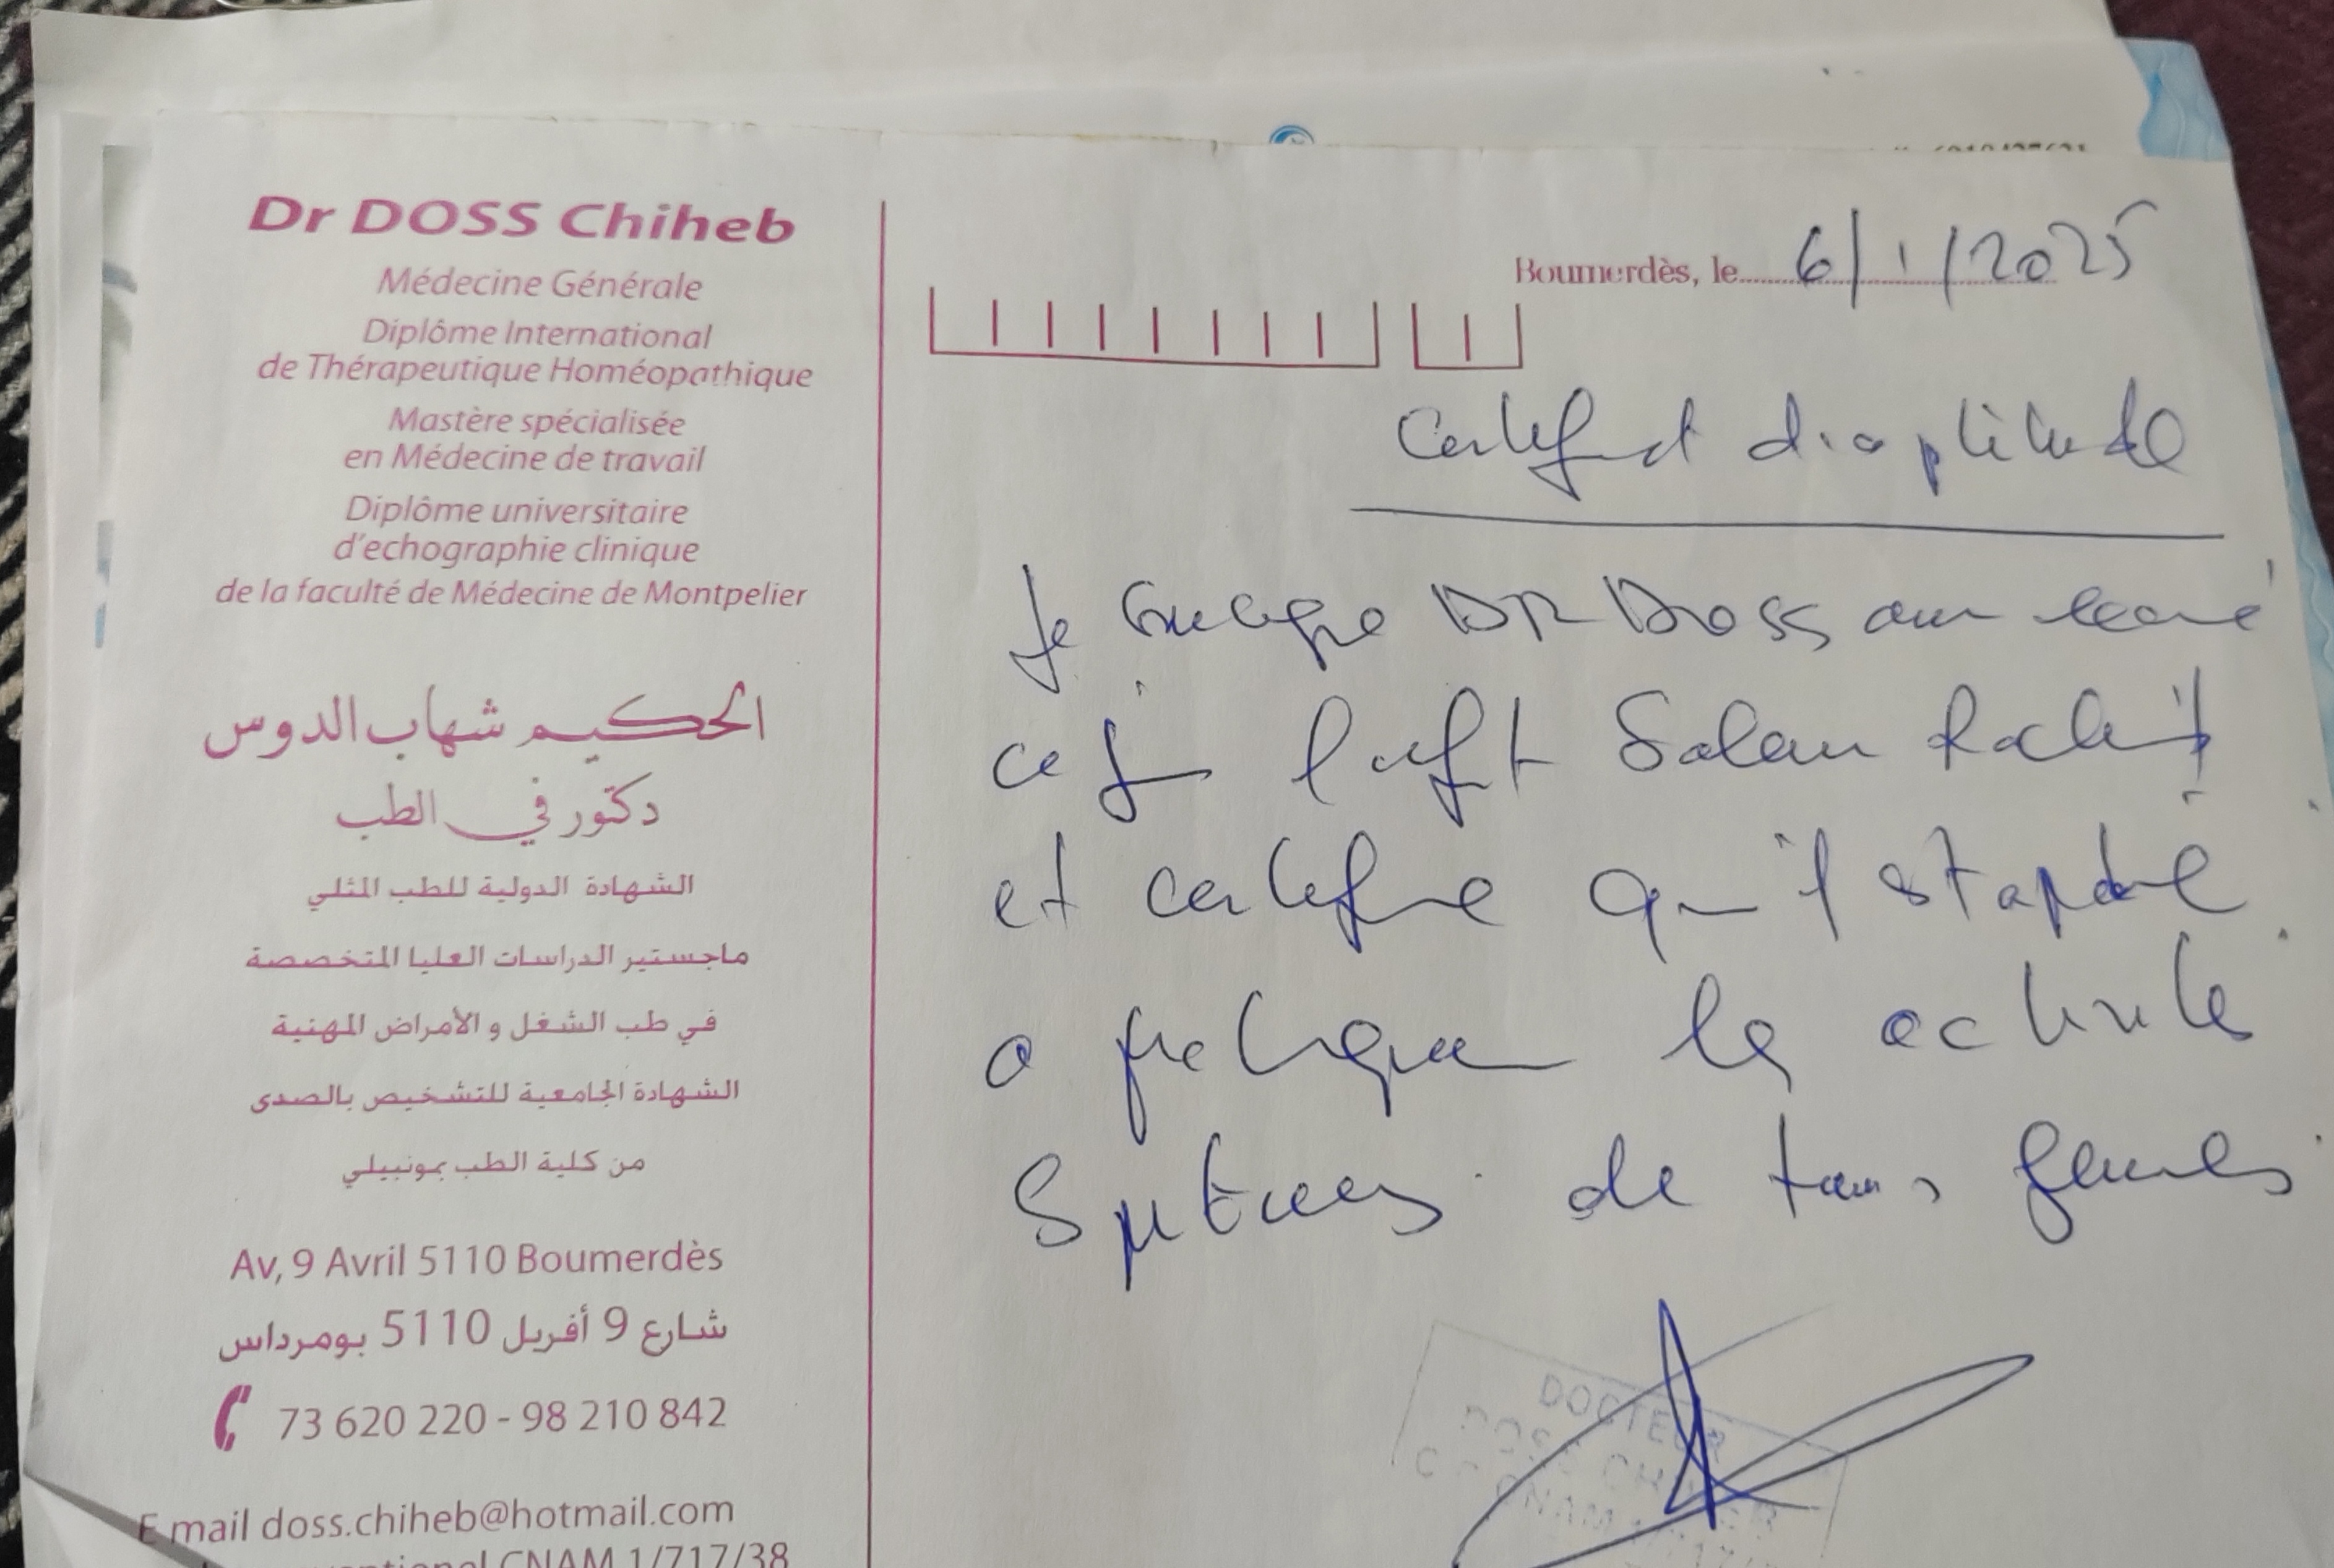 Dr DOSS Chiheb
Médecine Générale
Diplôme International
de Thérapeutique Homéopathique
Mastère spécialisée
en Médecine de travail
Diplôme universitaire
d'echographie clinique
de la faculté de Médecine de Montpelier
الحكيم شهاب الدوس
دكتور في الطب
الشهادة الدولية للطب المثلي
ماجستير الدراسات العليا المتخصصة
في طب الشغل و الأمراض المهنية
الشهادة الجامعية للتشخيص بالصدى
من كلية الطب بمونبيلي
Av, 9 Avril 5110 Boumerdès
شارع 9 أفريل 5110 بومرداس
73 620 220 - 98 210 842
E mail doss.chiheb@hotmail.com
CNAM 1/717/38
Boumerdès, le 6/1/2025
Certificat d'aptitude
Je soussigné DR Doss avoir examiné
ce jour l'enfant
et certifie qu'il est apte
a pratiquer les activités
Sportives de tous genres
DOCTEUR
DOSS CHIHEB
CNAM